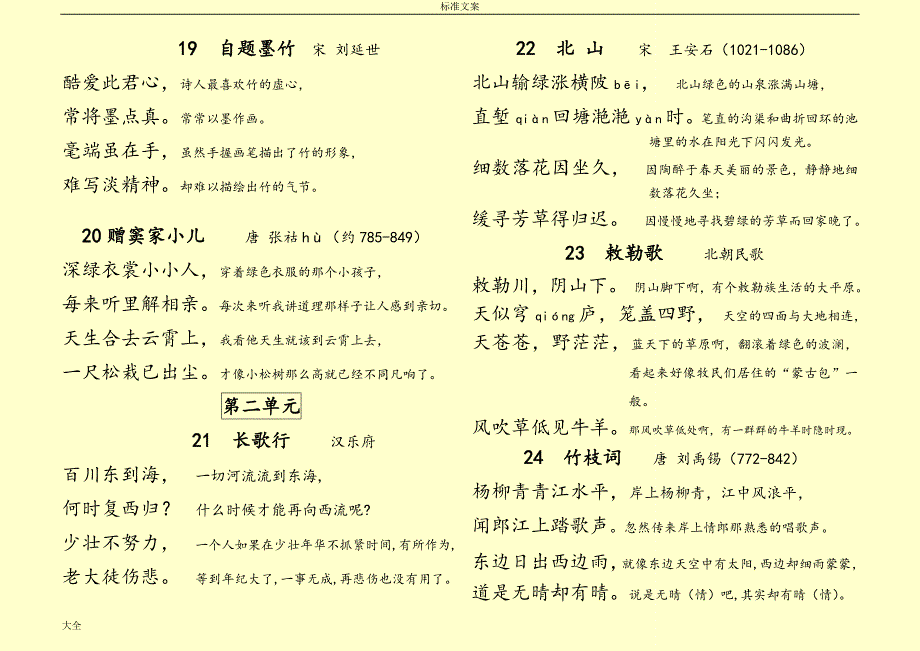 标准文案
19 自题墨竹 宋 刘延世
酷爱此君心，诗人最喜欢竹的虚心，
常将墨点真。常常以墨作画。
毫端虽在手，虽然手握画笔描出了竹的形象，
难写淡精神。却难以描绘出竹的气节。
20 赠窦家小儿 唐 张祜hù（约785-849）
深绿衣裳小小人，穿着绿色衣服的那个小孩子，
每来听里解相亲。每次来听我讲道理那样子让人感到亲切。
天生合去云霄上，我看他天生就该到云霄上去，
一尺松栽已出尘。才像小松树那么高就已经不同凡响了。
第二单元
21 长歌行 汉乐府
百川东到海， 一切河流流到东海，
何时复西归？ 什么时候才能再向西流呢?
少壮不努力， 一个人如果在少壮年华不抓紧时间,有所作为,
老大徒伤悲。 等到年纪大了,一事无成,再悲伤也没有用了。
22 北 山 宋 王安石（1021-1086）
北山输绿涨横陂 bēi， 北山绿色的山泉涨满山塘，
直堑 qiàn 回塘滟滟 yàn 时。笔直的沟渠和曲折回环的池
塘里的水在阳光下闪闪发光。
细数落花因坐久， 因陶醉于春天美丽的景色，静静地细
数落花久坐；
缓寻芳草得归迟。 因慢慢地寻找碧绿的芳草而回家晚了。
23 敕勒歌 北朝民歌
敕勒川，阴山下。 阴山脚下啊，有个敕勒族生活的大平原。
天似穹 qióng 庐，笼盖四野， 天空的四面与大地相连，
天苍苍，野茫茫，蓝天下的草原啊，翻滚着绿色的波澜，
看起来好像牧民们居住的“蒙古包”一
般。
风吹草低见牛羊。那风吹草低处啊，有一群群的牛羊时隐时现。
24 竹枝词 唐 刘禹锡（772-842）
杨柳青青江水平，岸上杨柳青，江中风浪平，
闻郎江上踏歌声。忽然传来岸上情郎那熟悉的唱歌声。
东边日出西边雨，就像东边天空中有太阳,西边却细雨蒙蒙，
道是无晴却有晴。说是无晴（情）吧,其实却有晴（情）。
大全